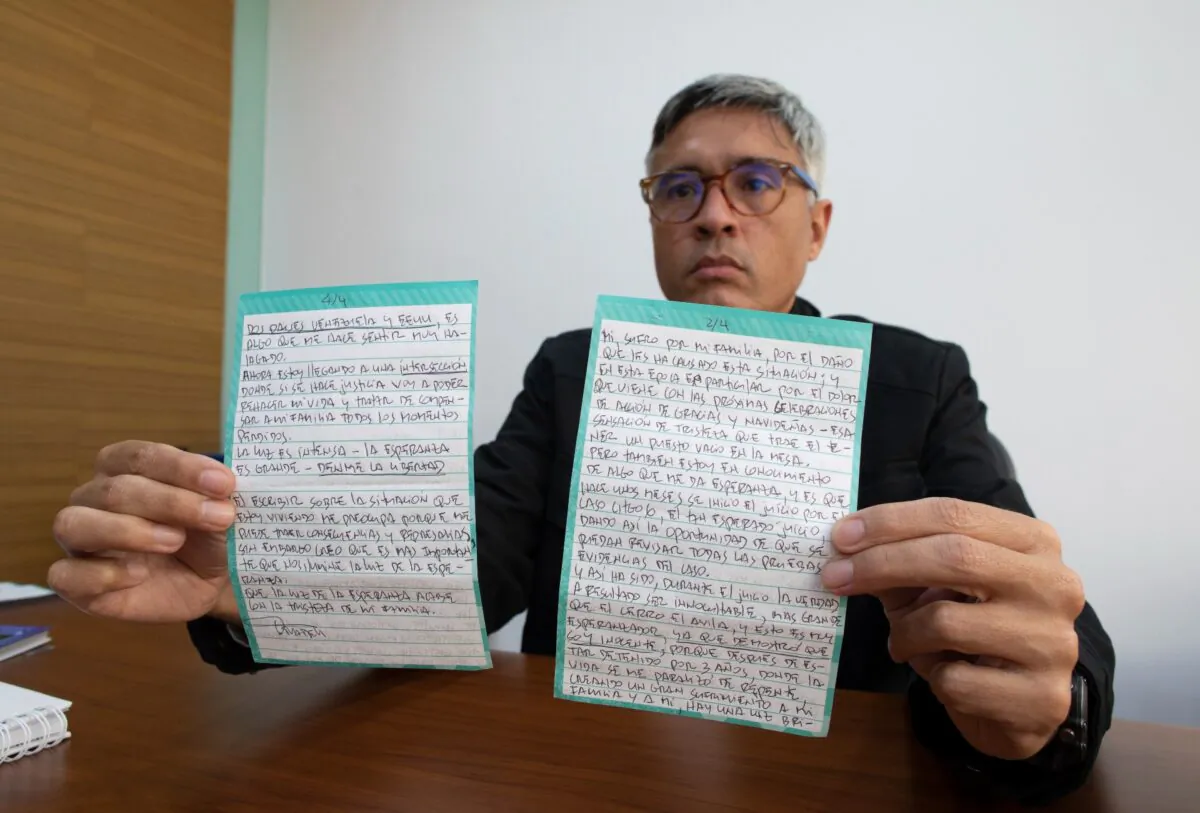 4/4
DOS PAISES VENEZUELA Y EEUU, ES
ALGO QUE ME HACE SENTIR MUY HA-
LAGADO.
AHORA ESTOY LLEGANDO A UNA INTERSECCIÓN
DONDE SI SE HACE JUSTICIA VOY A PODER
REHACER MI VIDA Y TRATAR DE COMPEN-
SAR A MI FAMILIA TODOS LOS MOMENTOS
PERDIDOS.
LA LUZ ES INTENSA - LA ESPERANZA
ES GRANDE - DENME LA LIBERTAD
EL ESCRIBIR SOBRE LA SITUACIÓN QUE
ESTOY VIVIENDO ME PREOCUPA PORQUE ME
PUEDE TRAER CONSECUENCIAS Y REPRESALIAS,
SIN EMBARGO CREO QUE ES MAS IMPORTAN-
TE QUE NOS ILUMINE LA LUZ DE LA ESPE-
RANZA.
QUE LA LUZ DE LA ESPERANZA ACABE
CON LA TRISTEZA DE MI FAMILIA.
2/4
MI, SUFRO POR MI FAMILIA, POR EL DAÑO
QUE LES HA CAUSADO ESTA SITUACIÓN; Y
EN ESTA EPOCA EN PARTICULAR POR EL DOLOR
QUE VIENE CON LAS PROXIMAS CELEBRACIONES
DE ACCIÓN DE GRACIAS Y NAVIDEÑAS - ESA
SENSACIÓN DE TRISTEZA QUE TRAE EL TE-
NER UN PUESTO VACIO EN LA MESA.
PERO TAMBIEN ESTOY EN CONOCIMIENTO
DE ALGO QUE ME DA ESPERANZA, Y ES QUE
HACE UNOS MESES SE INICIO EL JUICIO POR EL
CASO CITGO 6, EL TAN ESPERADO JUICIO
DANDO ASI LA OPORTUNIDAD DE QUE SE
PUEDAN REVISAR TODAS LAS PRUEBAS
EVIDENCIAS DEL CASO.
Y ASI HA SIDO, DURANTE EL JUICIO LA VERDAD
A RESULTADO SER INNOCULTABLE, MAS GRANDE
QUE EL CERRO EL AVILA, Y ESTO ES MUY
ESPERANZADOR, YA QUE DEMOSTRÓ QUE
SOY INOCENTE, PORQUE DESPUES DE ES-
TAR DETENIDO POR 3 AÑOS, DONDE LA
VIDA SE ME PARALIZO DE REPENTE,
CREANDO UN GRAN SUFRIMIENTO A MI
FAMILIA Y A MI, HAY UNA LUZ BRI-